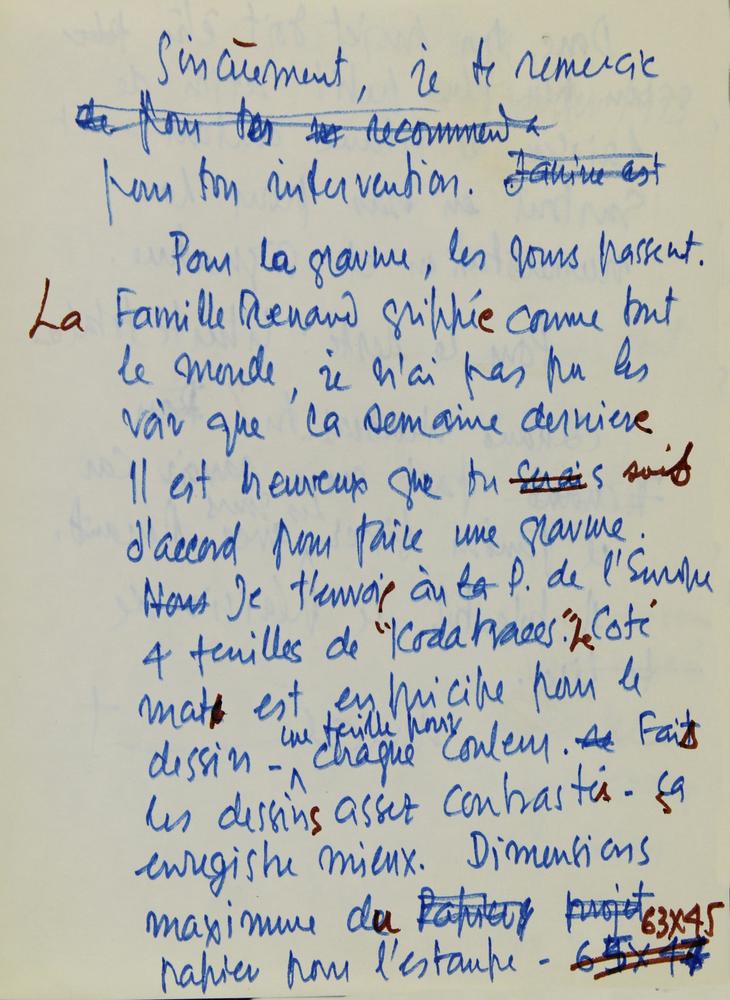 Sincèrement, je te remercie
de pour tes recommend
pour ton intervention. Janine est
Pour la gravure, les jours passent.
La Famille Renaud grippée comme tout
le monde, je n'ai pas pu les
voir que la semaine derniere
Il est heureux que tu serais soit
d'accord pour faire une gravure.
Nous Je t'envoie àn la P. de l'Europe
4 feuilles de "Kodatraces". Le Coté
mat est en pricipe pour le
dessin - une feuille pour chaque couleur. de Fais
les dessins assez contrastés - ça
enregistre mieux. Dimensions
maximum du Papier projet 63x45
papier pour l'estampe -